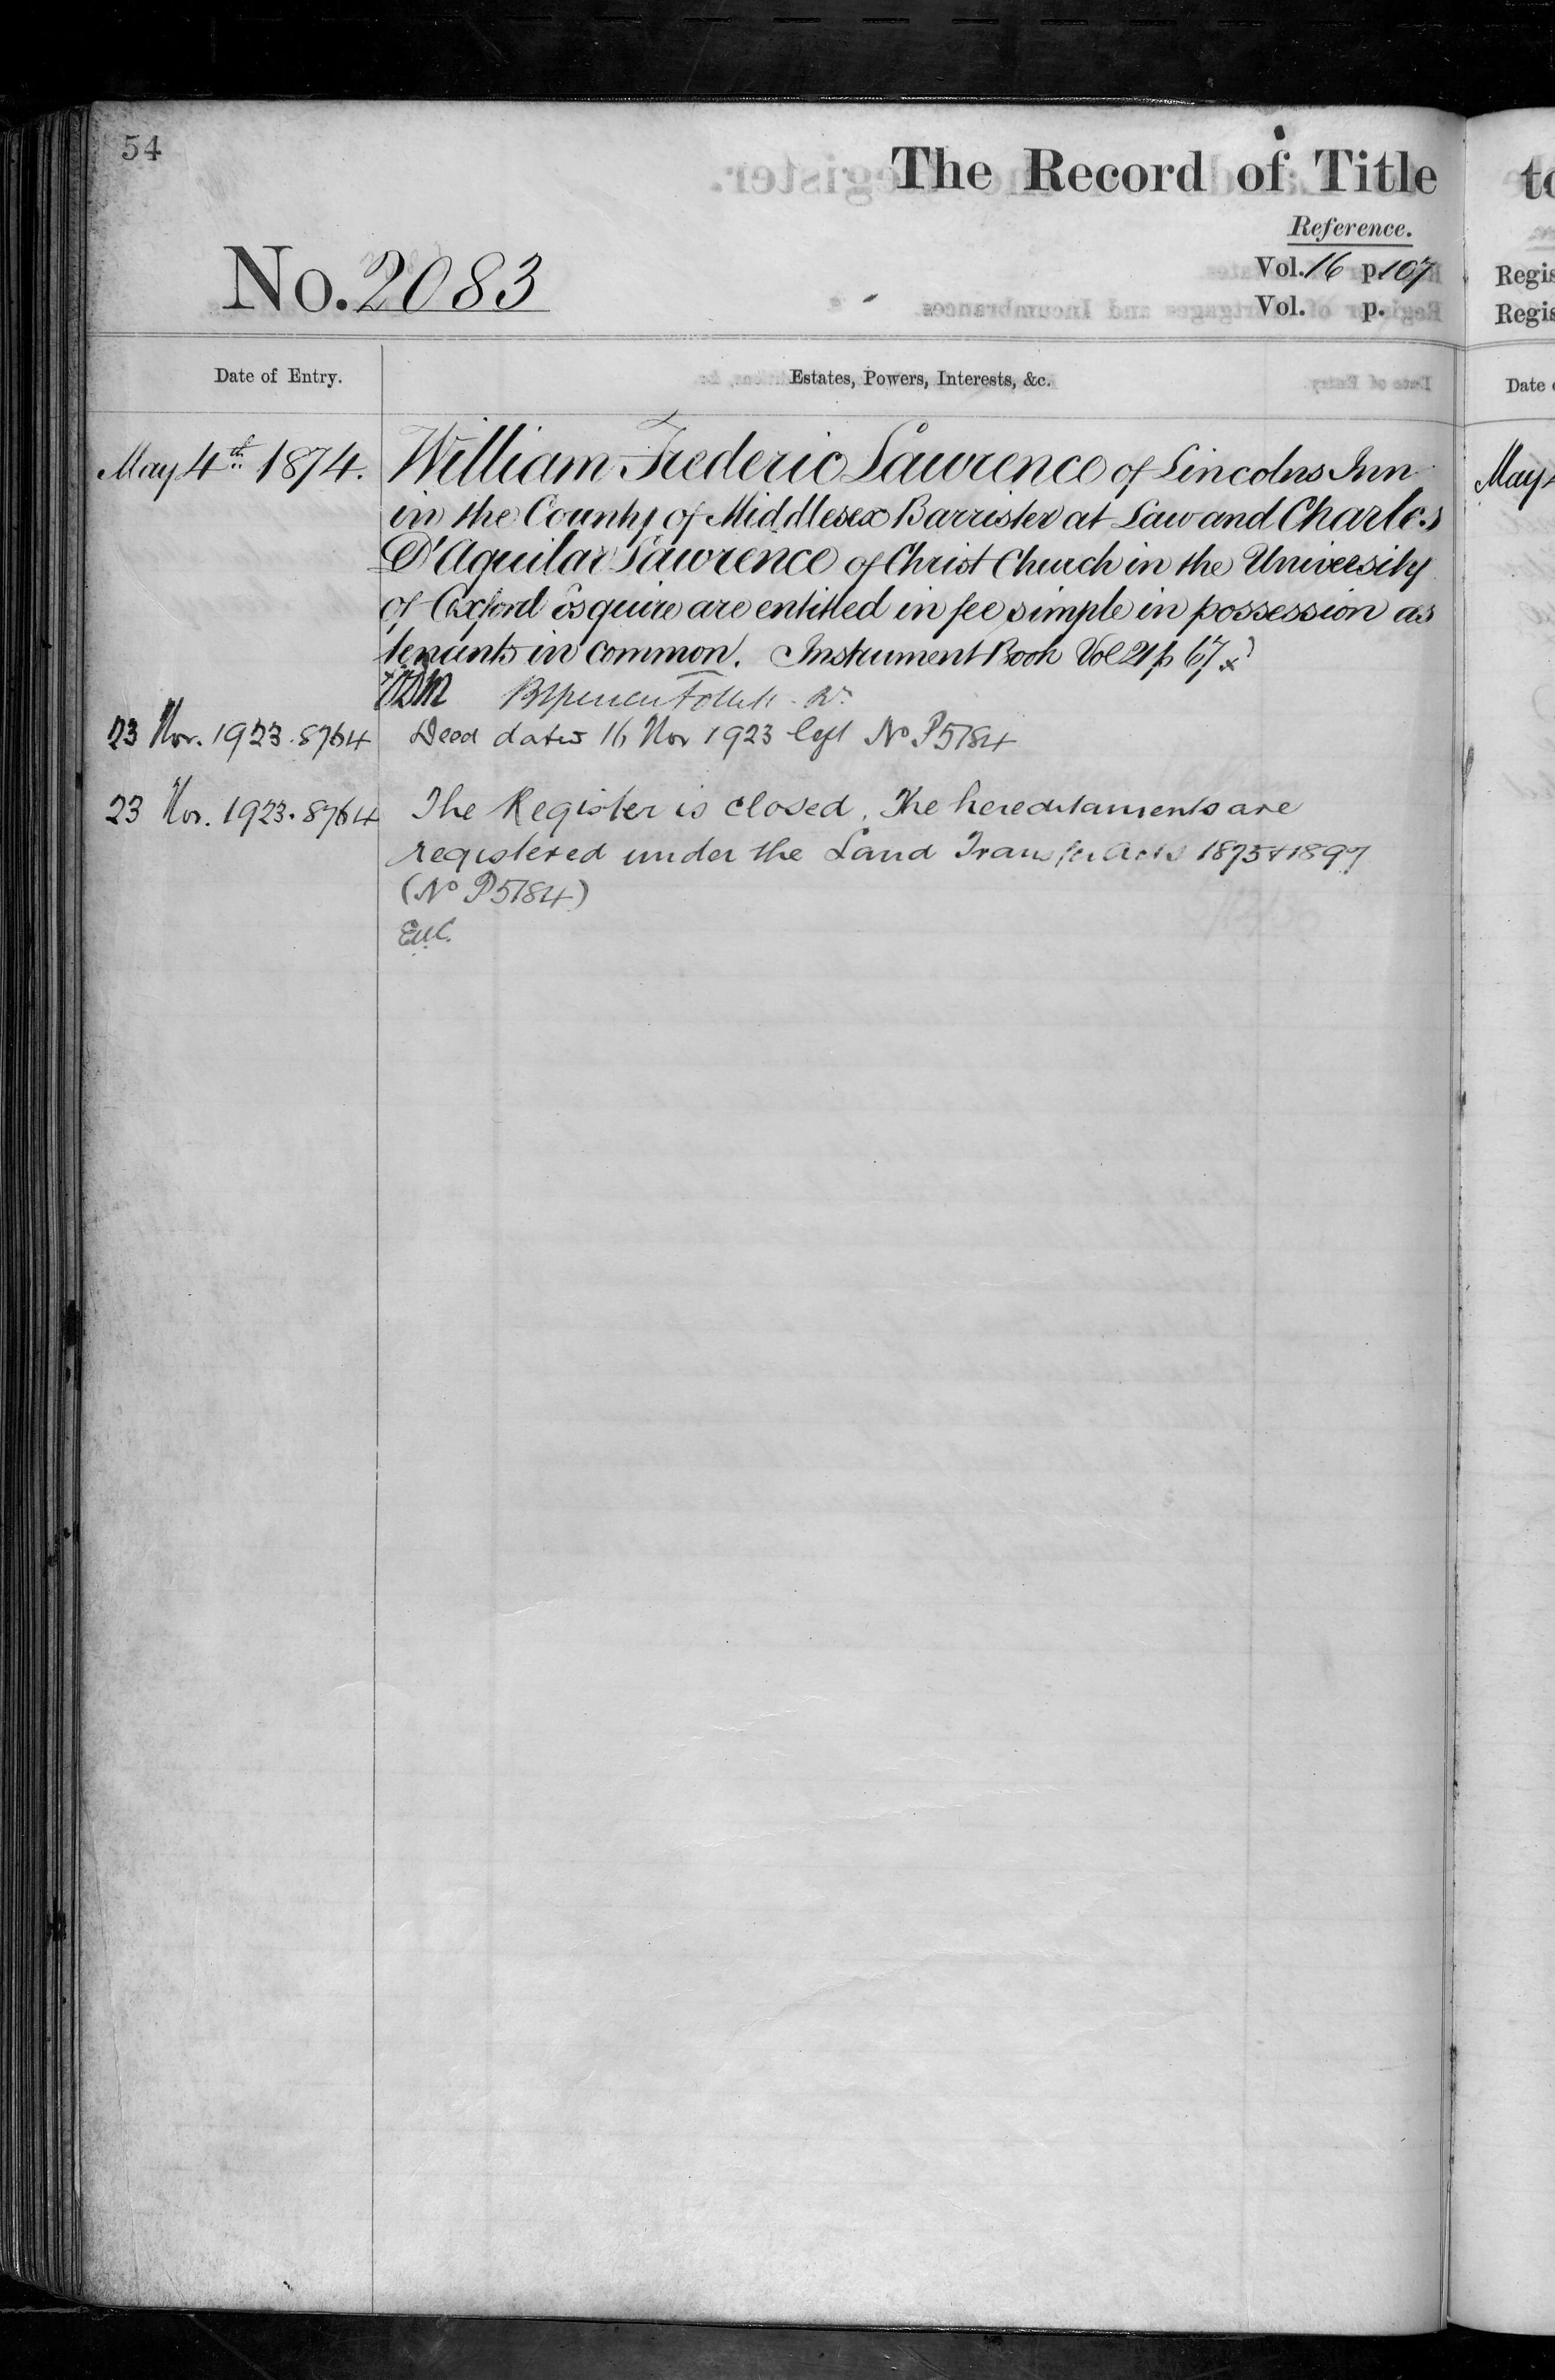 54
The Record of Title
Reference.
No. 2083
Vol. 16 p. 107
Vol. p.
Date of Entry.
Estates, Powers, Interests, &c.
May 4th 1874.
William Frederic Lawrence of Lincolns Inn
in the County of Middlesex Barrister at Law and Charles
D'Aguilar Lawrence of Christ Church in the University
of Oxford Esquire are entitled in fee simple in possession as
tenants in common. Instrument Book Vol 21 p 67 x
23 Nov. 1923. 8764
Deed dated 16 Nov 1923 left No P5184
23 Nov. 1923. 8764
The Register is closed. The hereditaments are
registered under the Land Transfer Acts 1875 & 1897
(No P5184)
to
Regis
Regis
Date
May